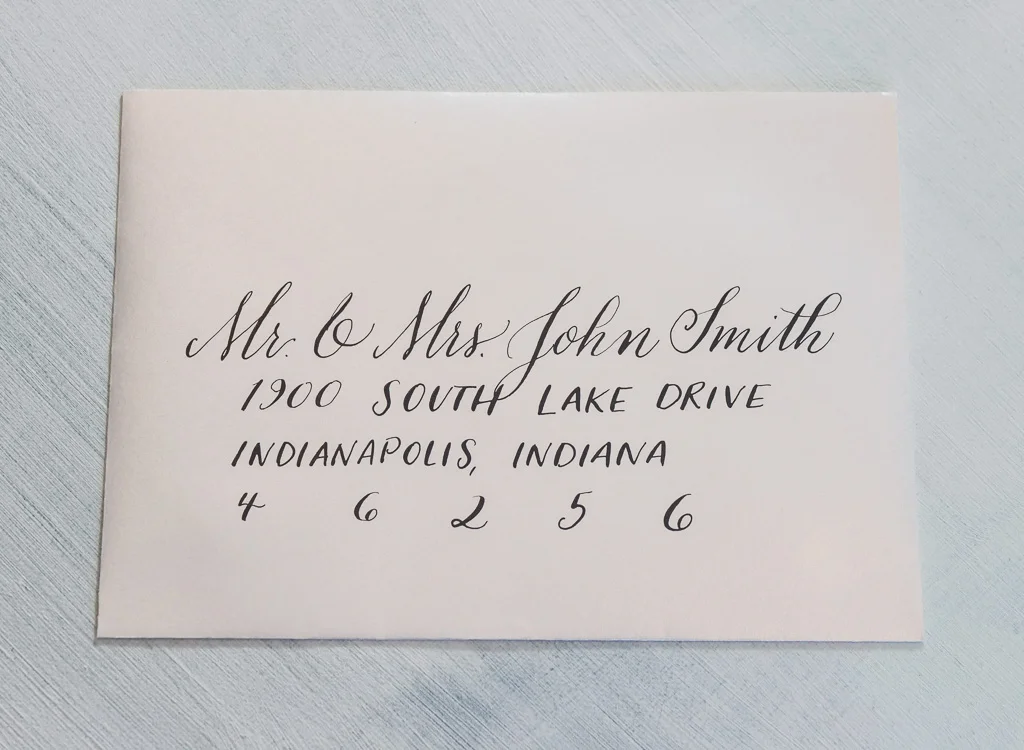 Mr. & Mrs. John Smith
1900 SOUTH LAKE DRIVE
INDIANAPOLIS, INDIANA
4 6 2 5 6